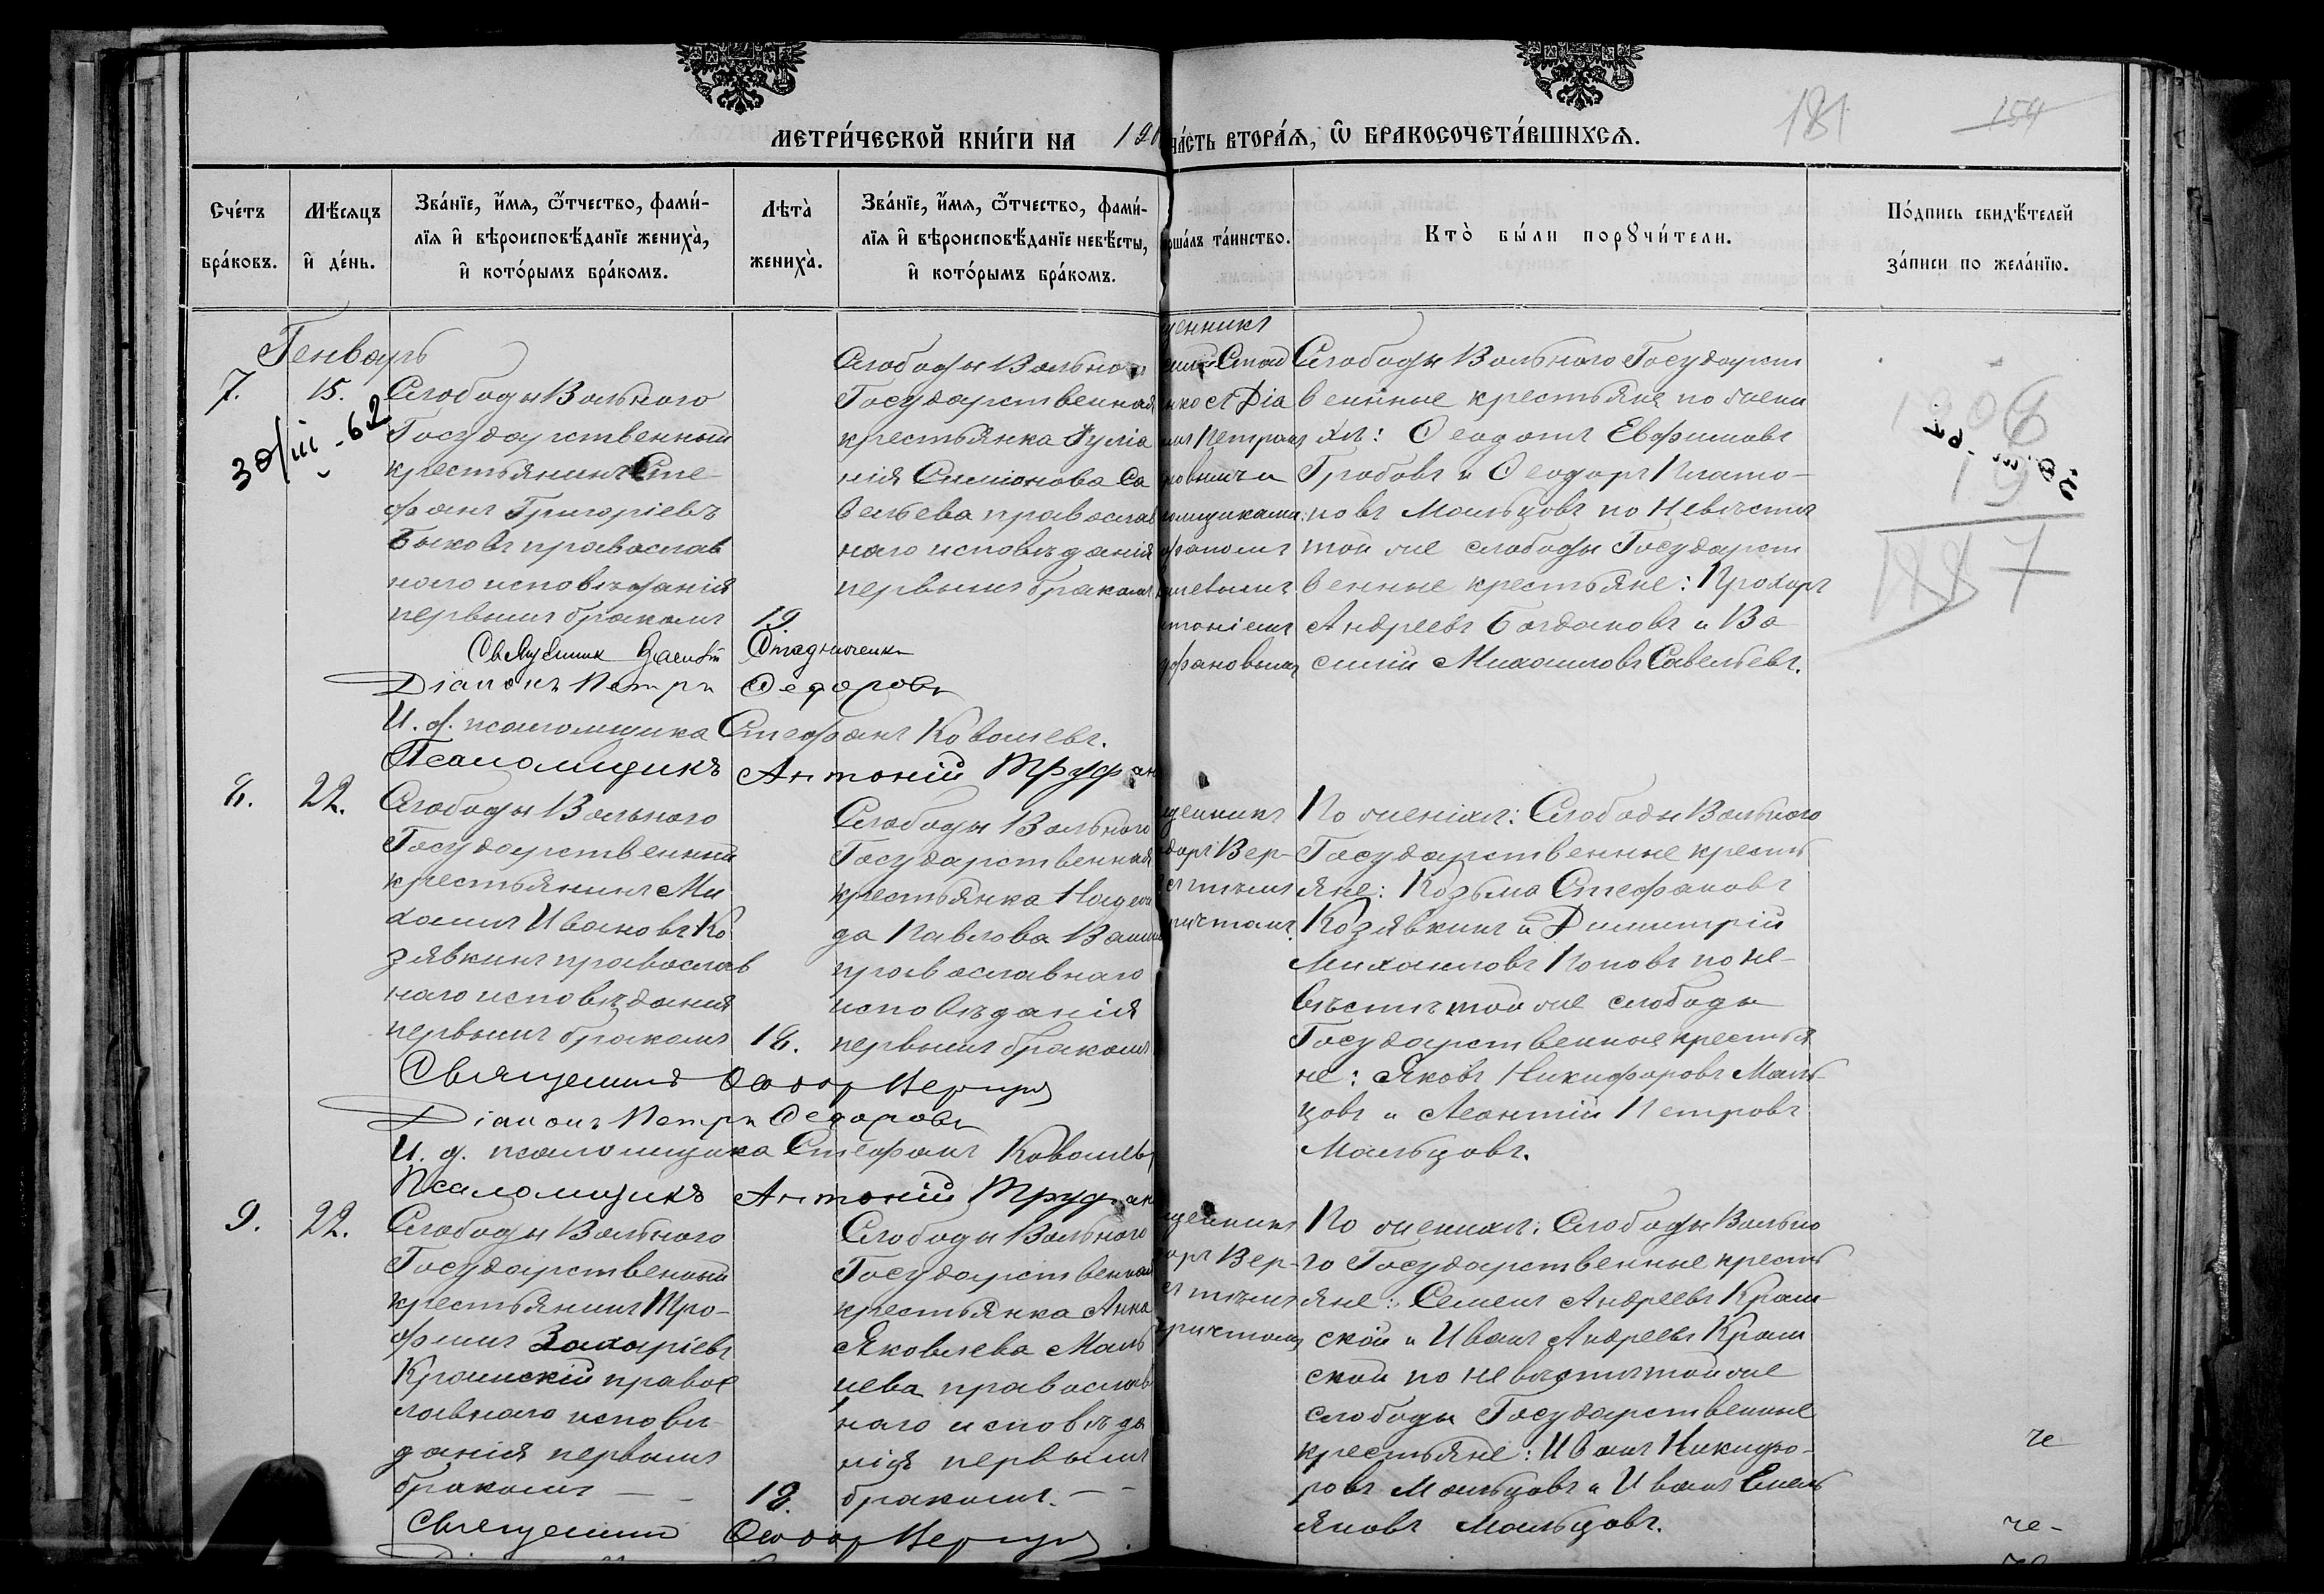 МЕТРИ́ЧЕСКОЙ КНИ́ГИ НА
ЧА́СТЬ ВТОРА́Ѧ, Ѡ БРАКОСОЧЕТА́ВШИХСѦ.
181
154
Сче́тъ
бра́ковъ.
Мѣ́сѧцъ
и҆ де́нь.
Зва́нїе, и҆́мѧ, ѻ҆́тчество, фами́-
лїѧ и҆ вѣроисповѣ́данїе жениха̀,
и҆ кото́рымъ бра́комъ.
Лѣта̀
жениха̀.
Зва́нїе, и҆́мѧ, ѻ҆́тчество, фами́-
лїѧ и҆ вѣроисповѣ́данїе невѣ́сты,
и҆ кото́рымъ бра́комъ.
рша́лъ та́инство.
Кто̀ бы́ли порꙋчи́тели.
По́дпись свидѣ́телей
за́писи по жела́нїю.
Генварь
7.
15.
Слободы Вольного
Государственный
крестьянинъ Сте
фанъ Григоріевъ
Быковъ православ
наго исповѣданія
первымъ бракомъ
19.
Слободы Вольного
Государственная
крестьянка Іуліа
нія Симіонова Са
вельева православ
наго исповѣданія
первымъ бракомъ
Слободы Вольного Государст
венные крестьяне по жени
хѣ: Ѳеодотъ Евфимовъ
Гробовъ и Ѳеодоръ Плато-
новъ Мальцовъ по невѣстѣ
той же слободы Государст
венные крестьяне: Прохоръ
Андреевъ Богдановъ и Ва
силій Михаиловъ Савельевъ.
Діаконъ Петръ Ѳедоровъ
И. д. псаломщика Стефанъ Ковалевъ.
Псаломщикъ Антоній Труфан
8.
22.
Слободы Вольного
Государственный
крестьянинъ Ми
хаилъ Ивановъ Ко
зявкинъ православ
наго исповѣданія
первымъ бракомъ
18.
Слободы Вольного
Государственная
крестьянка Надеж
да Павлова
православнаго
исповѣданія
первымъ бракомъ
По женихѣ: Слободы Вольного
Государственные кресть
яне: Козьма Стефановъ
Козявкинъ и Димитрій
Михаиловъ Поповъ по не-
вѣстѣ той же слободы
Государственные крестья
не: Яковъ Никифоровъ Маль-
цовъ и Леонтій Петровъ
Мальцовъ.
Священникъ Ѳеодоръ
Діаконъ Петръ Ѳедоровъ
И. д. псаломщика Стефанъ Ковалевъ
Псаломщикъ Антоній Труфан
9.
22.
Слободы Вольного
Государственный
крестьянинъ Тро-
фимъ Захаріевъ
Крамскій правос
лавнаго исповѣ-
данія первымъ
бракомъ
18.
Слободы Вольного
Государственная
крестьянка Анна
Яковлева Маль
цева православ
наго исповѣда
нія первымъ
бракомъ.
По женихѣ: Слободы Вольно
го Государственные кресть
яне: Семенъ Андреевъ Крам-
ской и Иванъ Андреевъ Крам
ской по невѣстѣ той же
слободы Государственные
крестьяне: Иванъ Никифо-
ровъ Мальцовъ и Иванъ Емель
яновъ Мальцовъ.
Священникъ Ѳеодоръ